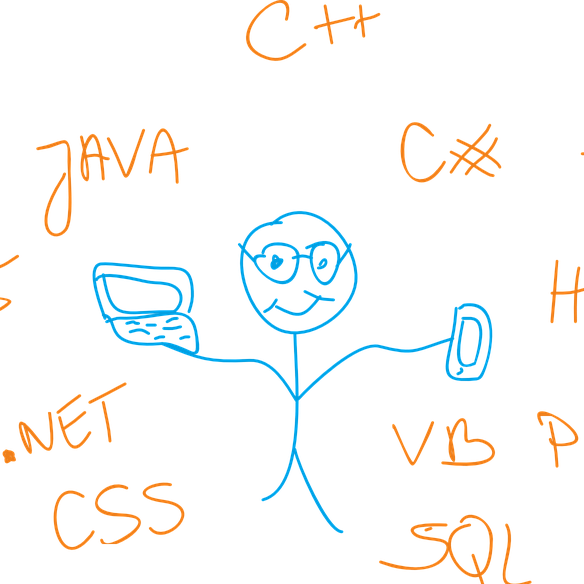 C++
JAVA
C#
.NET
VB
CSS
SQL